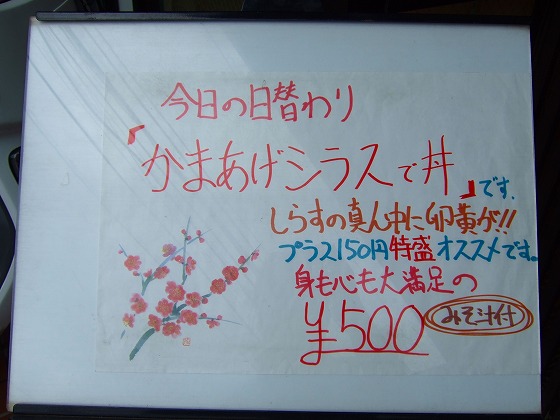 今日の日替わり
『かまあげシラスで丼』です。
しらすの真ん中に卵黄が!!
プラス150円特盛オススメです。
身も心も大満足の
¥500 みそ汁付